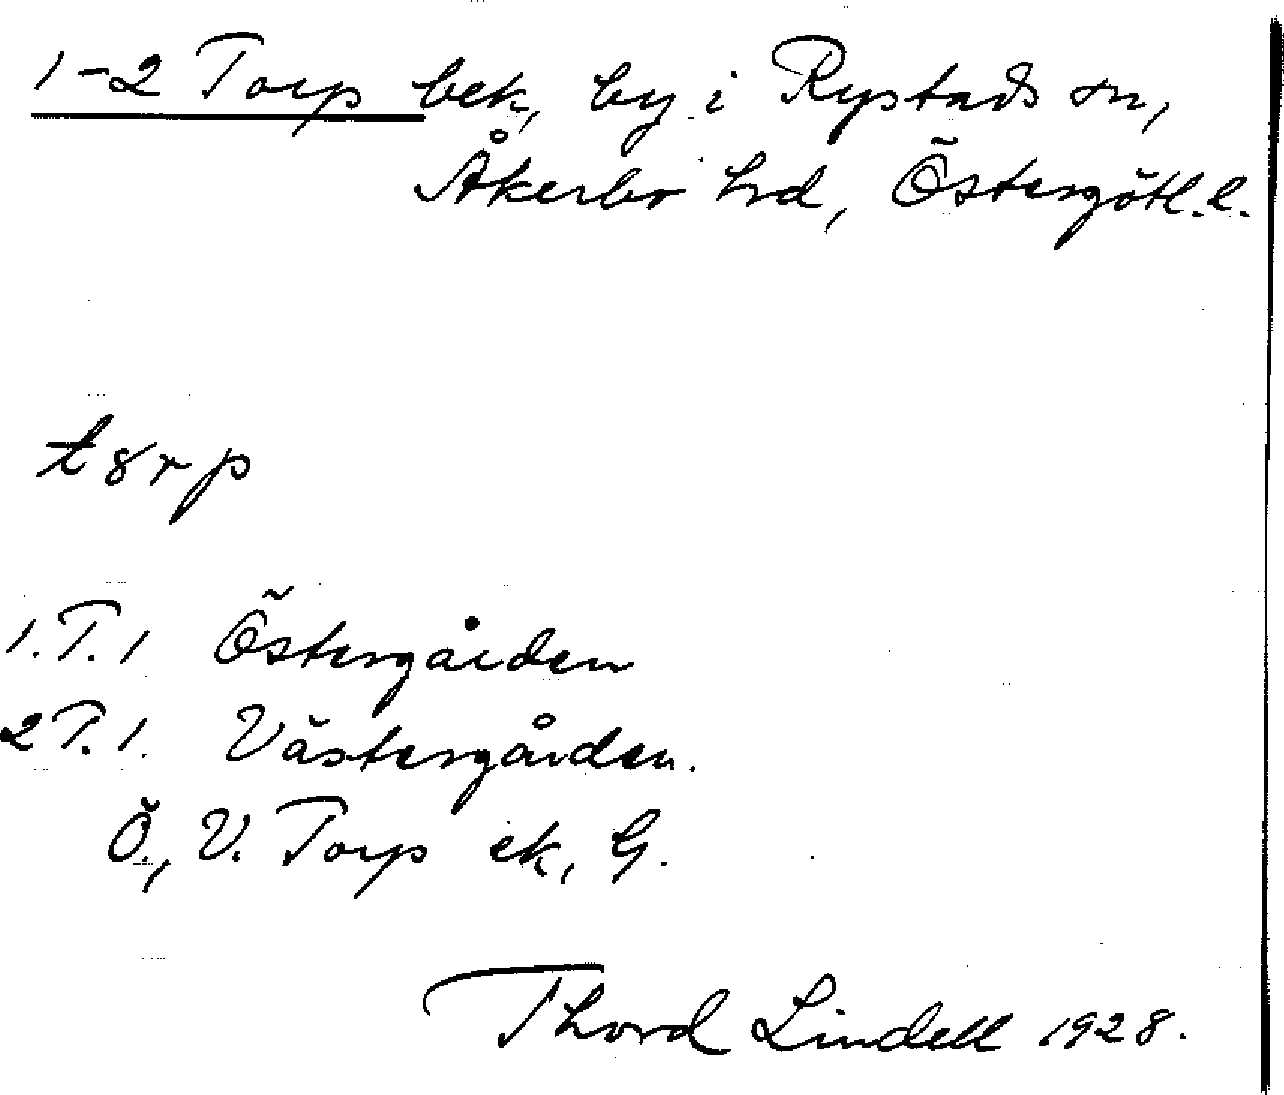 1-2 Torp bek, by i Rystads sn,
Åkerbo hd, Östergötl. l.
t8rp
1. T. 1 Östergården
2 T. 1. Västergården.
Ö., V. Torp ek, G.
Thord Lindell 1928.